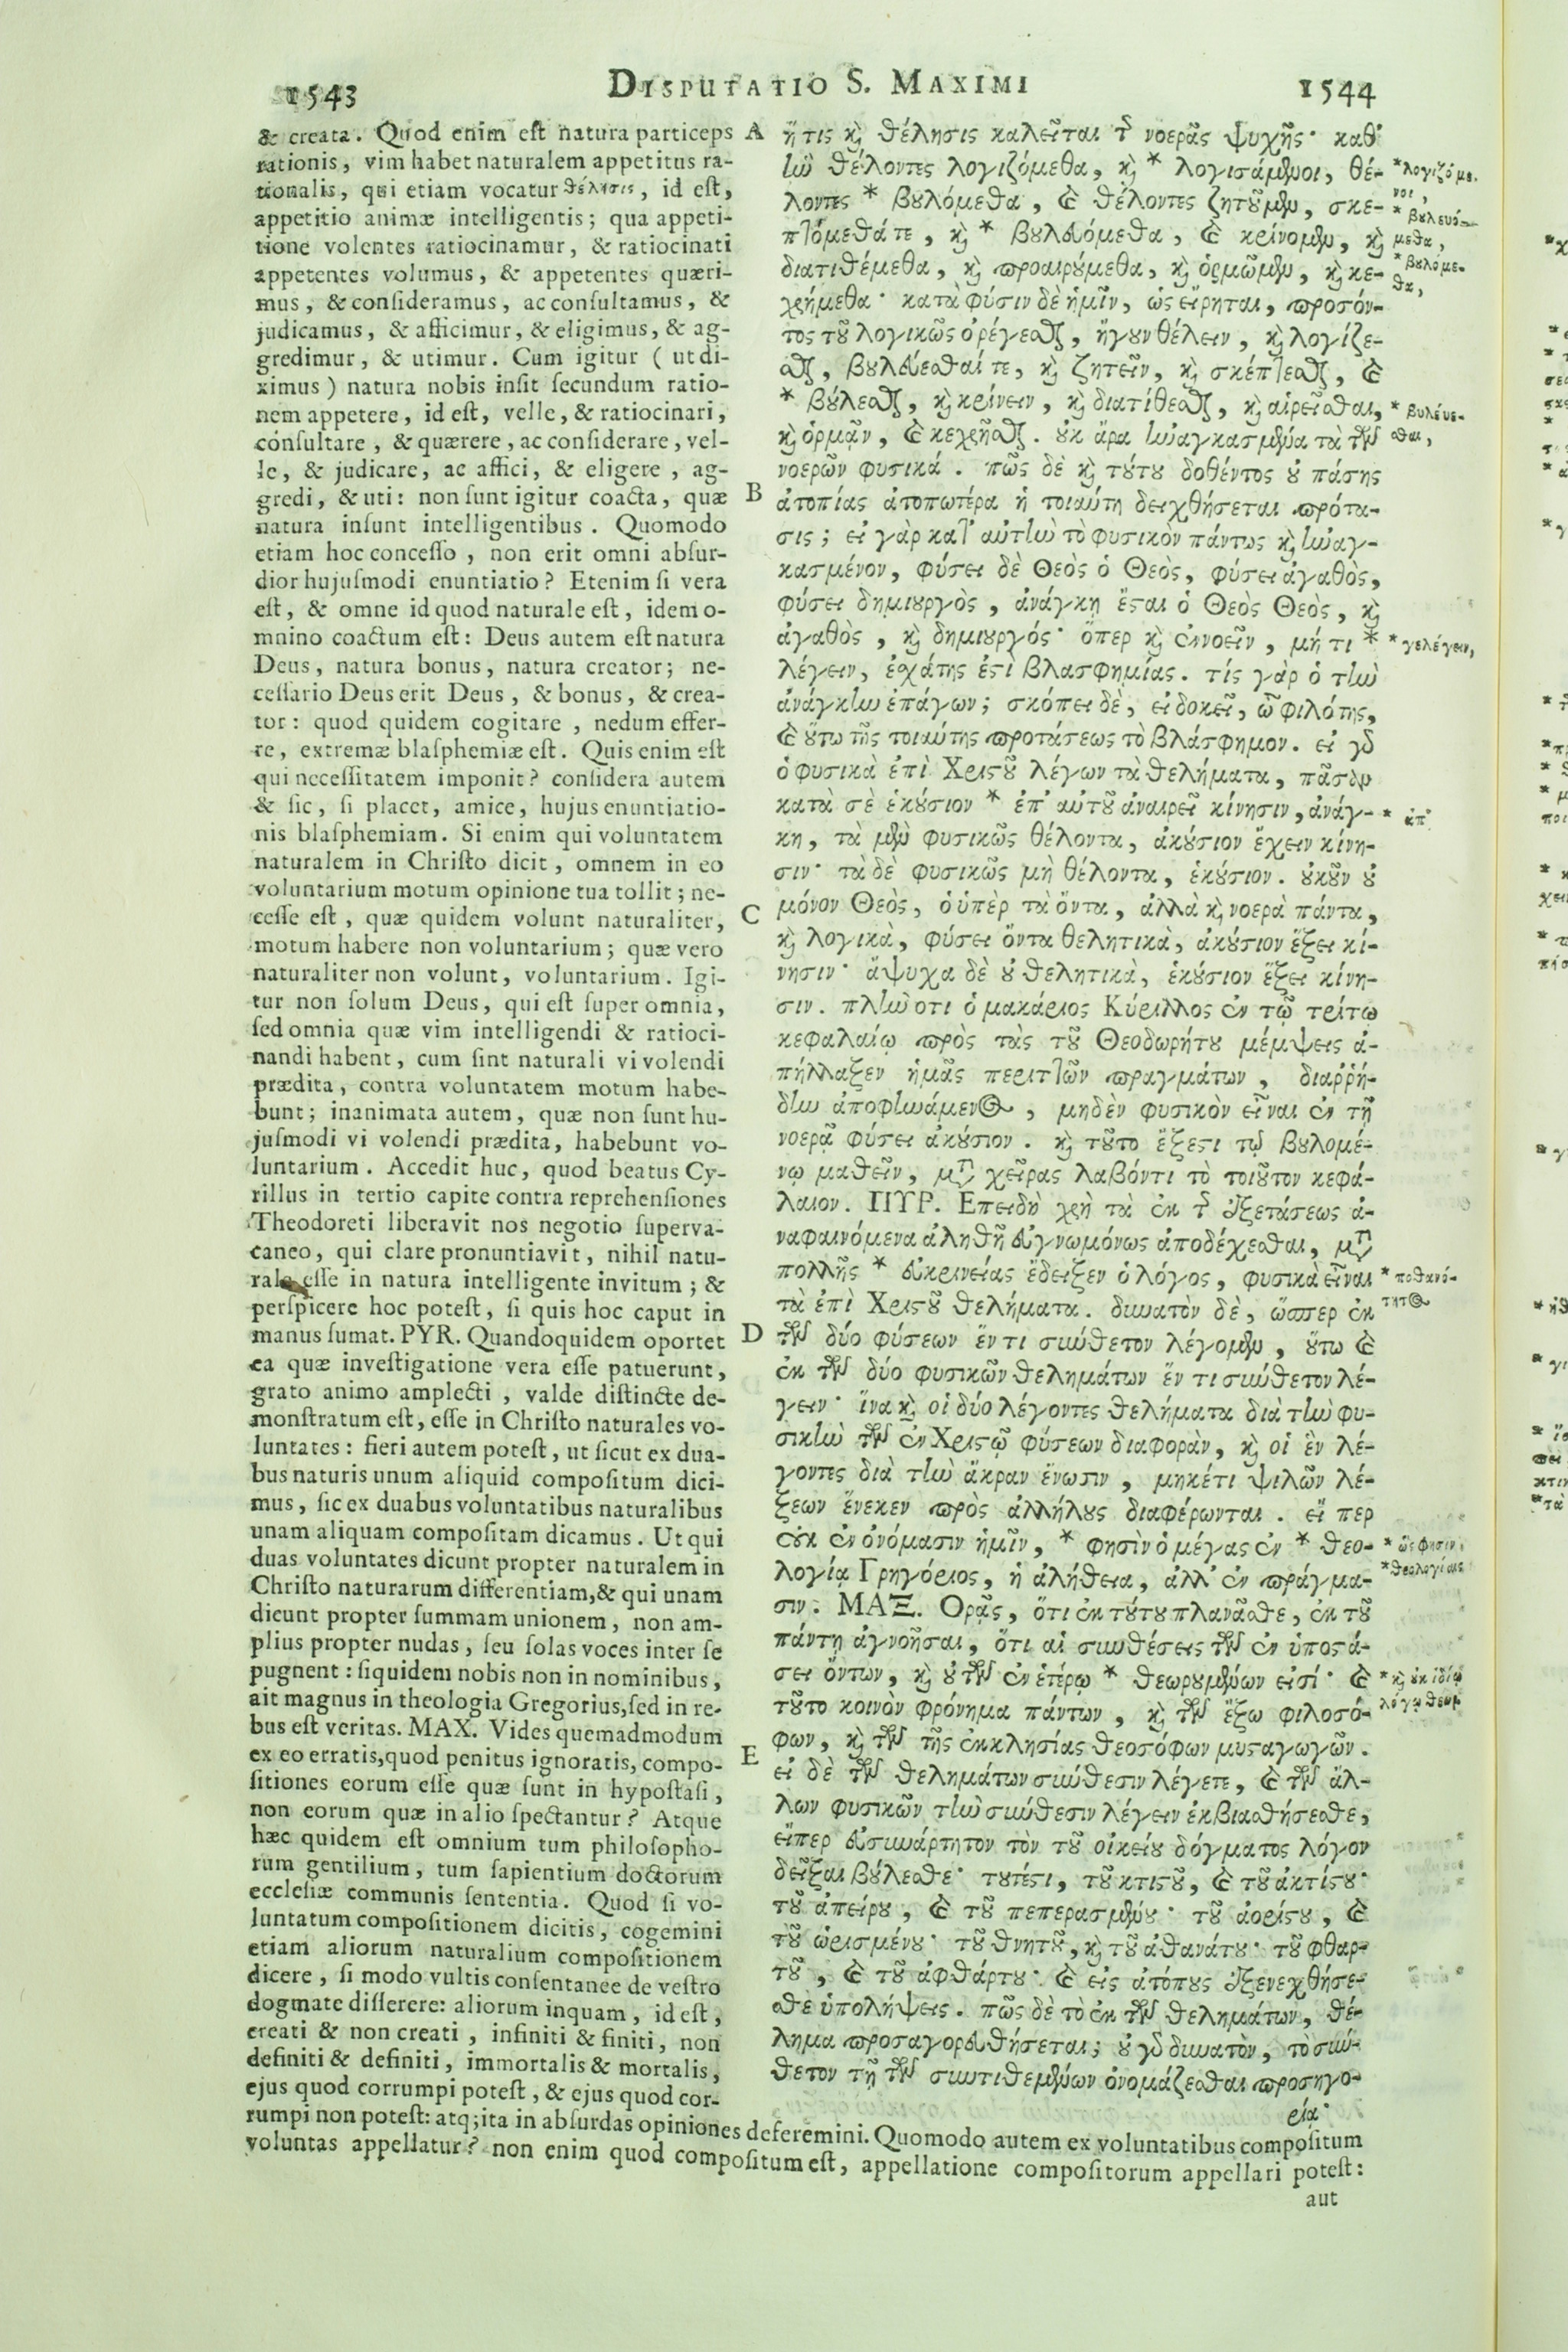 1543
DISPUTATIO S. MAXIMI
1544
& creata. Quod enim eſt natura particeps
rationis, vim habet naturalem appetitus ra-
tionalis, qui etiam vocatur θέλησις, id eſt,
appetitio animæ intelligentis; qua appeti-
tione volentes ratiocinamur, & ratiocinati
appetentes volumus, & appetentes quæri-
mus, & conſideramus, ac conſultamus, &
judicamus, & afficimur, & eligimus, & ag-
gredimur, & utimur. Cum igitur ( ut di-
ximus ) natura nobis inſit ſecundum ratio-
nem appetere, id eſt, velle, & ratiocinari,
conſultare, & quærere, ac conſiderare, vel-
le, & judicare, ac affici, & eligere, ag-
gredi, & uti: non ſunt igitur coacta, quæ
natura inſunt intelligentibus. Quomodo
etiam hoc conceſſo, non erit omni abſur-
dior hujuſmodi enuntiatio? Etenim ſi vera
eſt, & omne id quod naturale eſt, idem o-
mnino coactum eſt: Deus autem eſt natura
Deus, natura bonus, natura creator; ne-
ceſſario Deus erit Deus, & bonus, & crea-
tor: quod quidem cogitare, nedum effer-
re, extremæ blaſphemiæ eſt. Quis enim eſt
qui neceſſitatem imponit? conſidera autem
& ſic, ſi placet, amice, hujus enuntiatio-
nis blaſphemiam. Si enim qui voluntatem
naturalem in Chriſto dicit, omnem in eo
voluntarium motum opinione tua tollit; ne-
ceſſe eſt, quæ quidem volunt naturaliter,
motum habere non voluntarium; quæ vero
naturaliter non volunt, voluntarium. Igi-
tur non ſolum Deus, qui eſt ſuper omnia,
ſed omnia quæ vim intelligendi & ratioci-
nandi habent, cum ſint naturali vi volendi
prædita, contra voluntatem motum habe-
bunt; inanimata autem, quæ non ſunt hu-
juſmodi vi volendi prædita, habebunt vo-
luntarium. Accedit huc, quod beatus Cy-
rillus in tertio capite contra reprehenſiones
Theodoreti liberavit nos negotio ſuperva-
caneo, qui clare pronuntiavit, nihil natu-
rale eſſe in natura intelligente invitum; &
perſpicere hoc poteſt, ſi quis hoc caput in
manus ſumat. PYR. Quandoquidem oportet
ea quæ inveſtigatione vera eſſe patuerunt,
grato animo amplecti, valde diſtincte de-
monſtratum eſt, eſſe in Chriſto naturales vo-
luntates: fieri autem poteſt, ut ſicut ex dua-
bus naturis unum aliquid compoſitum dici-
mus, ſic ex duabus voluntatibus naturalibus
unam aliquam compoſitam dicamus. Ut qui
duas voluntates dicunt propter naturalem in
Chriſto naturarum differentiam, & qui unam
dicunt propter ſummam unionem, non am-
plius propter nudas, ſeu ſolas voces inter ſe
pugnent: ſiquidem nobis non in nominibus,
ait magnus in theologia Gregorius, ſed in re-
bus eſt veritas. MAX. Vides quemadmodum
ex eo erratis, quod penitus ignoratis, compo-
ſitiones eorum eſſe quæ ſunt in hypoſtaſi,
non eorum quæ in alio ſpectantur? Atque
hæc quidem eſt omnium tum philoſopho-
rum gentilium, tum ſapientium doctorum
eccleſiæ communis ſententia. Quod ſi vo-
luntatum compoſitionem dicitis, cogemini
etiam aliorum naturalium compoſitionem
dicere, ſi modo vultis conſentanee de veſtro
dogmate diſſerere: aliorum inquam, id eſt,
creati & non creati, infiniti & finiti, non
definiti & definiti, immortalis & mortalis,
ejus quod corrumpi poteſt, & ejus quod cor-
rumpi non poteſt: atq; ita in abſurdas opiniones deferemini. Quomodo autem ex voluntatibus compoſitum
voluntas appellatur? non enim quod compoſitum eſt, appellatione compoſitorum appellari poteſt:
aut
A
B
C
D
E
ἥ τις ϗ̀ θέλησις καλεῖται τ͂ νοερᾶς ψυχῆς· καθ'
ἣν θέλοντες λογιζόμεθα, ϗ̀ * λογισάμενοι, θέ-
λοντες * βȣλόμεθα, ϗ̀ θέλοντες ζητȣ͂μεν, σκε-
πτόμεθά τε, ϗ̀ * βȣλευόμεθα, ϗ̀ κρίνομεν, ϗ̀
διατιθέμεθα, ϗ̀ προαιρȣ́μεθα, ϗ̀ ὁρμῶμεν, ϗ̀ κε-
χρήμεθα· κατὰ φύσιν δὲ ἡμῖν, ὡς εἴρηται, προσόν-
τος τȣ͂ λογικῶς ὀρέγεσθαι, ἤγȣν θέλειν, ϗ̀ λογίζε-
σθαι, βȣλεύεσθαί τε, ϗ̀ ζητεῖν, ϗ̀ σκέπτεσθαι, ϗ̀
* βȣ́λεσθαι, ϗ̀ κρίνειν, ϗ̀ διατίθεσθαι, ϗ̀ αἱρεῖσθαι,
ϗ̀ ὁρμᾷν, ϗ̀ κεχρῆσθαι. ȣ̓κ ἄρα ἠναγκασμένα τὰ τῶν
νοερῶν φυσικά. πῶς δὲ ϗ̀ τȣ́τȣ δοθέντος ȣ̓ πάσης
ἀτοπίας ἀτοπωτέρα ἡ τοιαύτη δειχθήσεται πρότα-
σις; εἰ γὰρ κατ' αὐτὴν τὸ φυσικὸν πάντως ϗ̀ ἠναγ-
κασμένον, φύσει δὲ Θεὸς ὁ Θεὸς, φύσει ἀγαθὸς,
φύσει δημιȣργὸς, ἀνάγκῃ ἔσαι ὁ Θεὸς Θεὸς, ϗ̀
ἀγαθὸς, ϗ̀ δημιȣργός· ὅπερ ϗ̀ ἐννοεῖν, μή τι *
λέγειν, ἐσχάτης ἐστὶ βλασφημίας. τίς γὰρ ὁ τὴν
ἀνάγκην ἐπάγων; σκόπει δὲ, εἰ δοκεῖ, ὦ φιλότης,
ϗ̀ ȣ̔́τω τῆς τοιαύτης προτάσεως τὸ βλάσφημον. εἰ γὰρ
ὁ φυσικὰ ἐπὶ Χριστȣ͂ λέγων τὰ θελήματα, πᾶσαν
κατὰ σὲ ἑκȣ́σιον * ἐπ' αὐτȣ͂ ἀναιρεῖ κίνησιν, ἀνάγ-
κη, τὰ μὲν φυσικῶς θέλοντα, ἀκȣ́σιον ἔχειν κίνη-
σιν· τὰ δὲ φυσικῶς μὴ θέλοντα, ἑκȣ́σιον. ȣ̓κȣ͂ν ȣ̓
μόνον Θεὸς, ὁ ὑπὲρ τὰ ὄντα, ἀλλὰ ϗ̀ νοερὰ πάντα,
ϗ̀ λογικὰ, φύσει ὄντα θελητικὰ, ἀκȣ́σιον ἕξει κί-
νησιν· ἄψυχα δὲ ȣ̓ θελητικὰ, ἑκȣ́σιον ἕξει κίνη-
σιν. πλὴν οτι ὁ μακάριος Κύριλλος ἐν τῷ τρίτῳ
κεφαλαίῳ πρὸς τὰς τȣ͂ Θεοδωρήτȣ μέμψεις ἀ-
πήλλαξεν ἡμᾶς περιττῶν πραγμάτων, διαῤῥή-
δην ἀποφηνάμενος, μηδὲν φυσικὸν εἶναι ἐν τῇ
νοερᾷ φύσει ἀκȣ́σιον. ϗ̀ τȣ͂το ἔξεστι τῷ βȣλομέ-
νῳ μαθεῖν, μετὰ χεῖρας λαβόντι τὸ τοιȣ͂τον κεφά-
λαιον. ΠΥΡ. Επειδὴ χρὴ τὰ ἐκ τ͂ ἐξετάσεως ἀ-
ναφαινόμενα ἀληθῆ εὐγνωμόνως ἀποδέχεσθαι, μετὰ
πολλῆς * εὐκρινείας ἔδειξεν ὁ λόγος, φυσικὰ εἶναι
τὰ ἐπὶ Χριστȣ͂ θελήματα. δυνατὸν δὲ, ὥσπερ ἐκ
τῶν δύο φύσεων ἕν τι σύνθετον λέγομεν, ȣ̔́τω ϗ̀
ἐκ τῶν δύο φυσικῶν θελημάτων ἕν τι σύνθετον λέ-
γειν· ἵνα ϗ̀ οἱ δύο λέγοντες θελήματα διὰ τὴν φυ-
σικὴν τῶν ἐν Χριστῷ φύσεων διαφορὰν, ϗ̀ οἱ ἓν λέ-
γοντες διὰ τὴν ἄκραν ἕνωσιν, μηκέτι ψιλῶν λέ-
ξεων ἕνεκεν πρὸς ἀλλήλȣς διαφέρωνται. εἴ περ
ȣ̓κ ἐν ὀνόμασιν ἡμῖν, * φησὶν ὁ μέγας ἐν * θεο-
λογίᾳ Γρηγόριος, ἡ ἀλήθεια, ἀλλ' ἐν πράγμα-
σιν. ΜΑΞ. Ορᾷς, ὅτι ἐκ τȣ́τȣ πλανᾶσθε, ἐκ τȣ͂
πάντῃ ἀγνοῆσαι, ὅτι αἱ συνθέσεις τῶν ἐν ὑποστά-
σει ὄντων, ϗ̀ ȣ̓ τῶν ἐν ἑτέρῳ * θεωρȣμένων εἰσί· ϗ̀
τȣ͂το κοινὸν φρόνημα πάντων, ϗ̀ τῶν ἔξω φιλοσό-
φων, ϗ̀ τῶν τῆς ἐκκλησίας θεοσόφων μυσταγωγῶν.
εἰ δὲ τῶν θελημάτων σύνθεσιν λέγετε, ϗ̀ τῶν ἄλ-
λων φυσικῶν τὴν σύνθεσιν λέγειν ἐκβιασθήσεσθε,
εἴπερ εὐσυνάρτητον τὸν τȣ͂ οἰκείȣ δόγματος λόγον
δεῖξαι βȣ́λεσθε· τȣτέστι, τȣ͂ κτιστȣ͂, ϗ̀ τȣ͂ ἀκτίστȣ·
τȣ͂ ἀπείρȣ, ϗ̀ τȣ͂ πεπερασμένȣ· τȣ͂ ἀορίστȣ, ϗ̀
τȣ͂ ὡρισμένȣ· τȣ͂ θνητȣ͂, ϗ̀ τȣ͂ ἀθανάτȣ· τȣ͂ φθαρ-
τȣ͂, ϗ̀ τȣ͂ ἀφθάρτȣ· ϗ̀ εἰς ἀτόπȣς ἐξενεχθήσε-
σθε ὑπολήψεις. πῶς δὲ τὸ ἐκ τῶν θελημάτων, θέ-
λημα προσαγορευθήσεται; ȣ̓ γὰρ δυνατὸν, τὸ σύν-
θετον τῇ τῶν συντιθεμένων ὀνομάζεσθαι προσηγο-
ρίᾳ·
* λογιζόμε-
νοι,
* βȣλευό-
μεθα,
* βȣλόμε-
θα,
* βȣλεύε-
σθαι,
* γε λέγειν,
* ἀπ'
* πιθανό-
τητος
* ὥς φησιν,
* θεολογίαις
* ϗ̀ ȣ̓κ ἰδίῳ
λόγῳ θεωρ